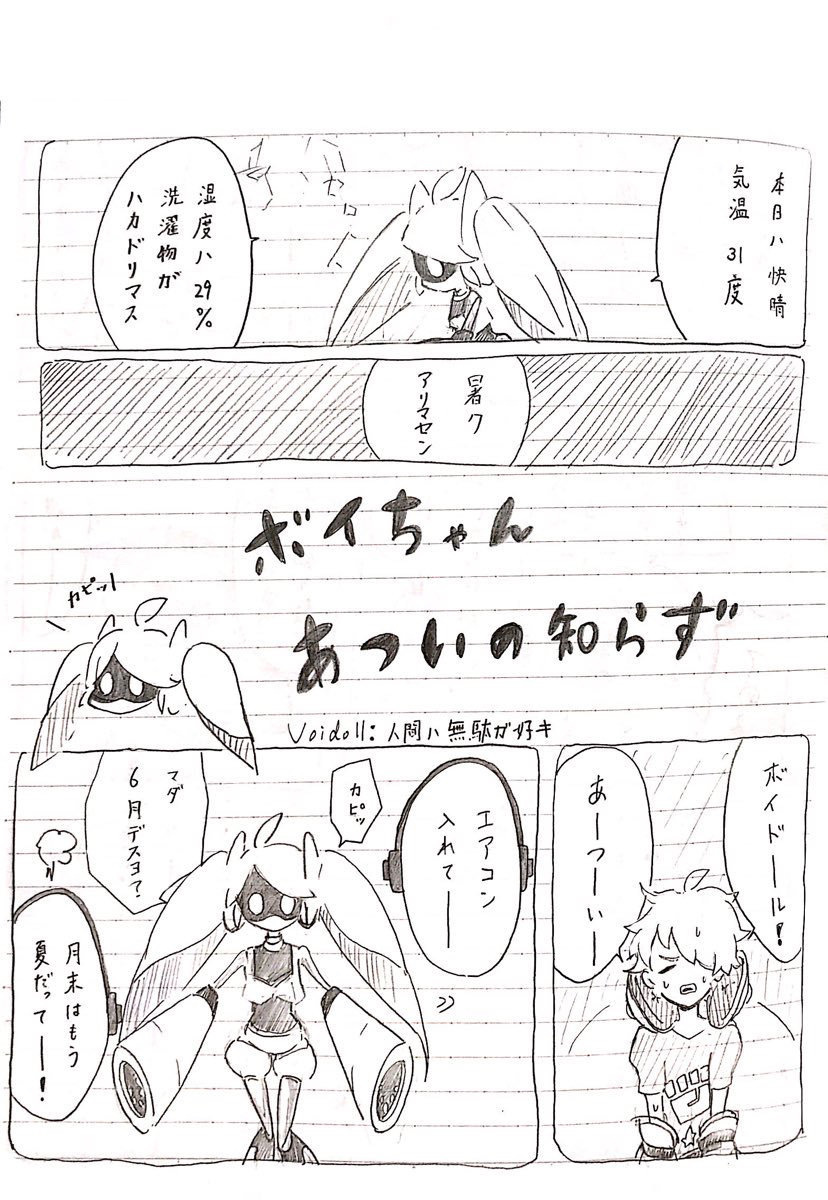 本日ハ快晴
気温 31度
湿度ハ29%
洗濯物が
ハカドリマス
暑ク
アリマセン
ボイちゃん
あついの知らず
カピッ!
Voidoll:人間ハ無駄ガ好キ
ボイドール!
あーつーいー
エアコン
入れてー
カピッ
マダ
6月デスヨ?
月末はもう
夏だってー!